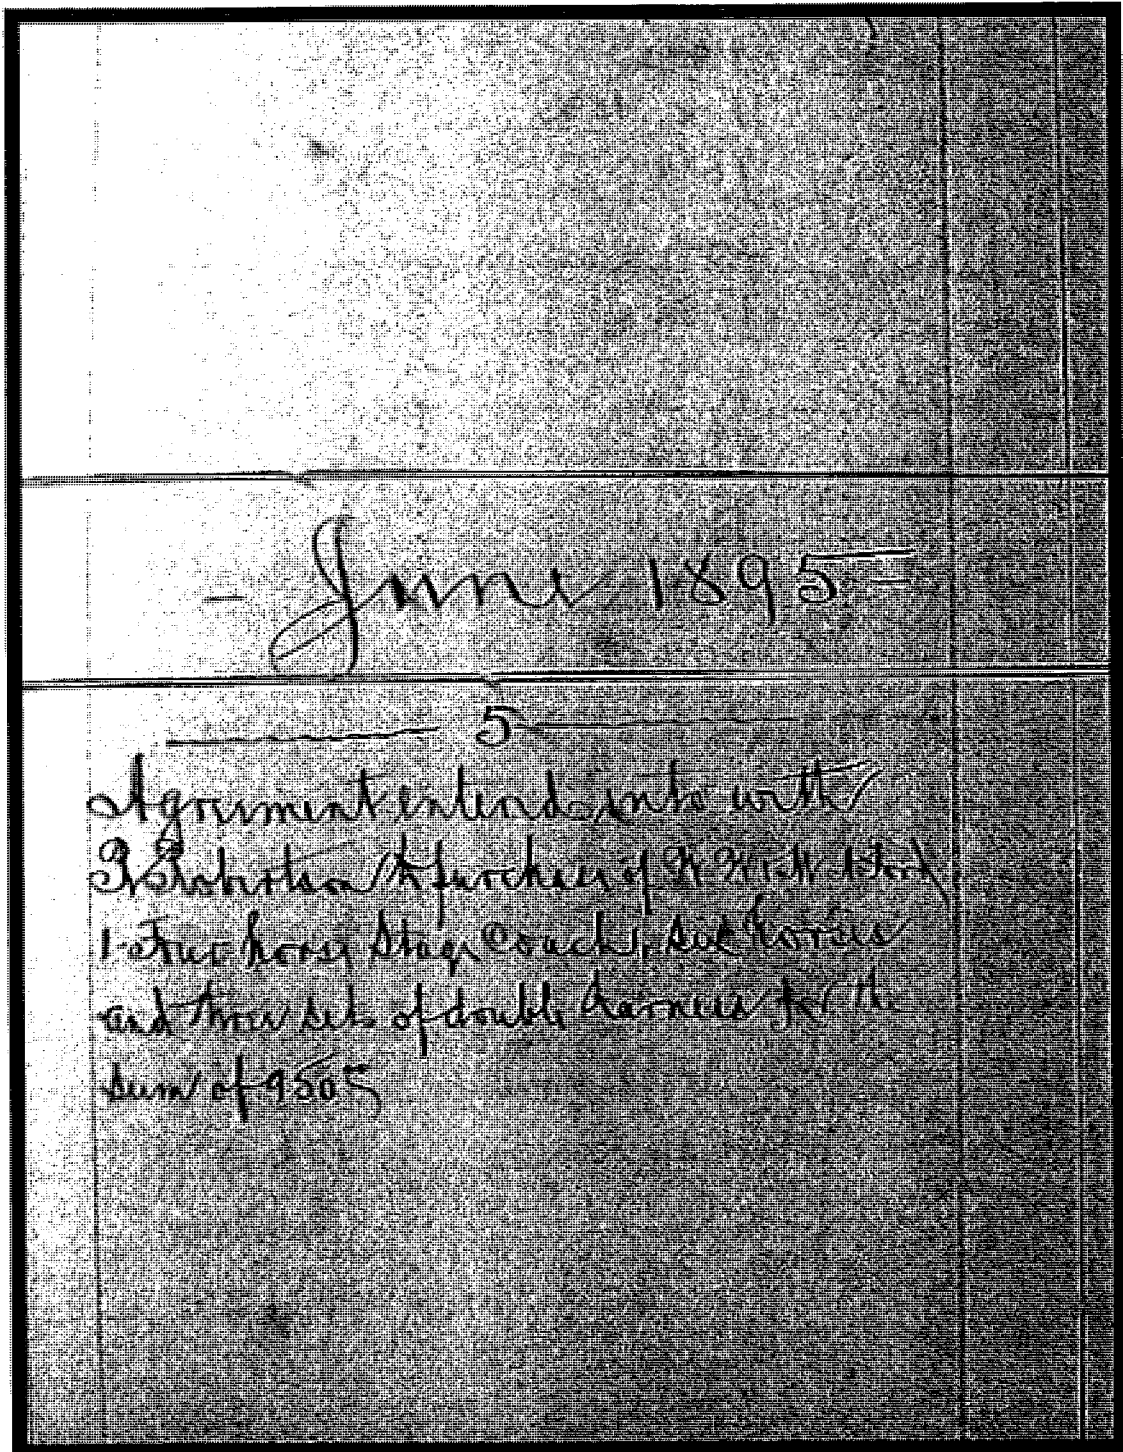 - June 1895 -
5
Agreement entered into with
Robertson to purchase of
1 four horse Stage Coach, six horses
and three sets of double harness for the
sum of 950